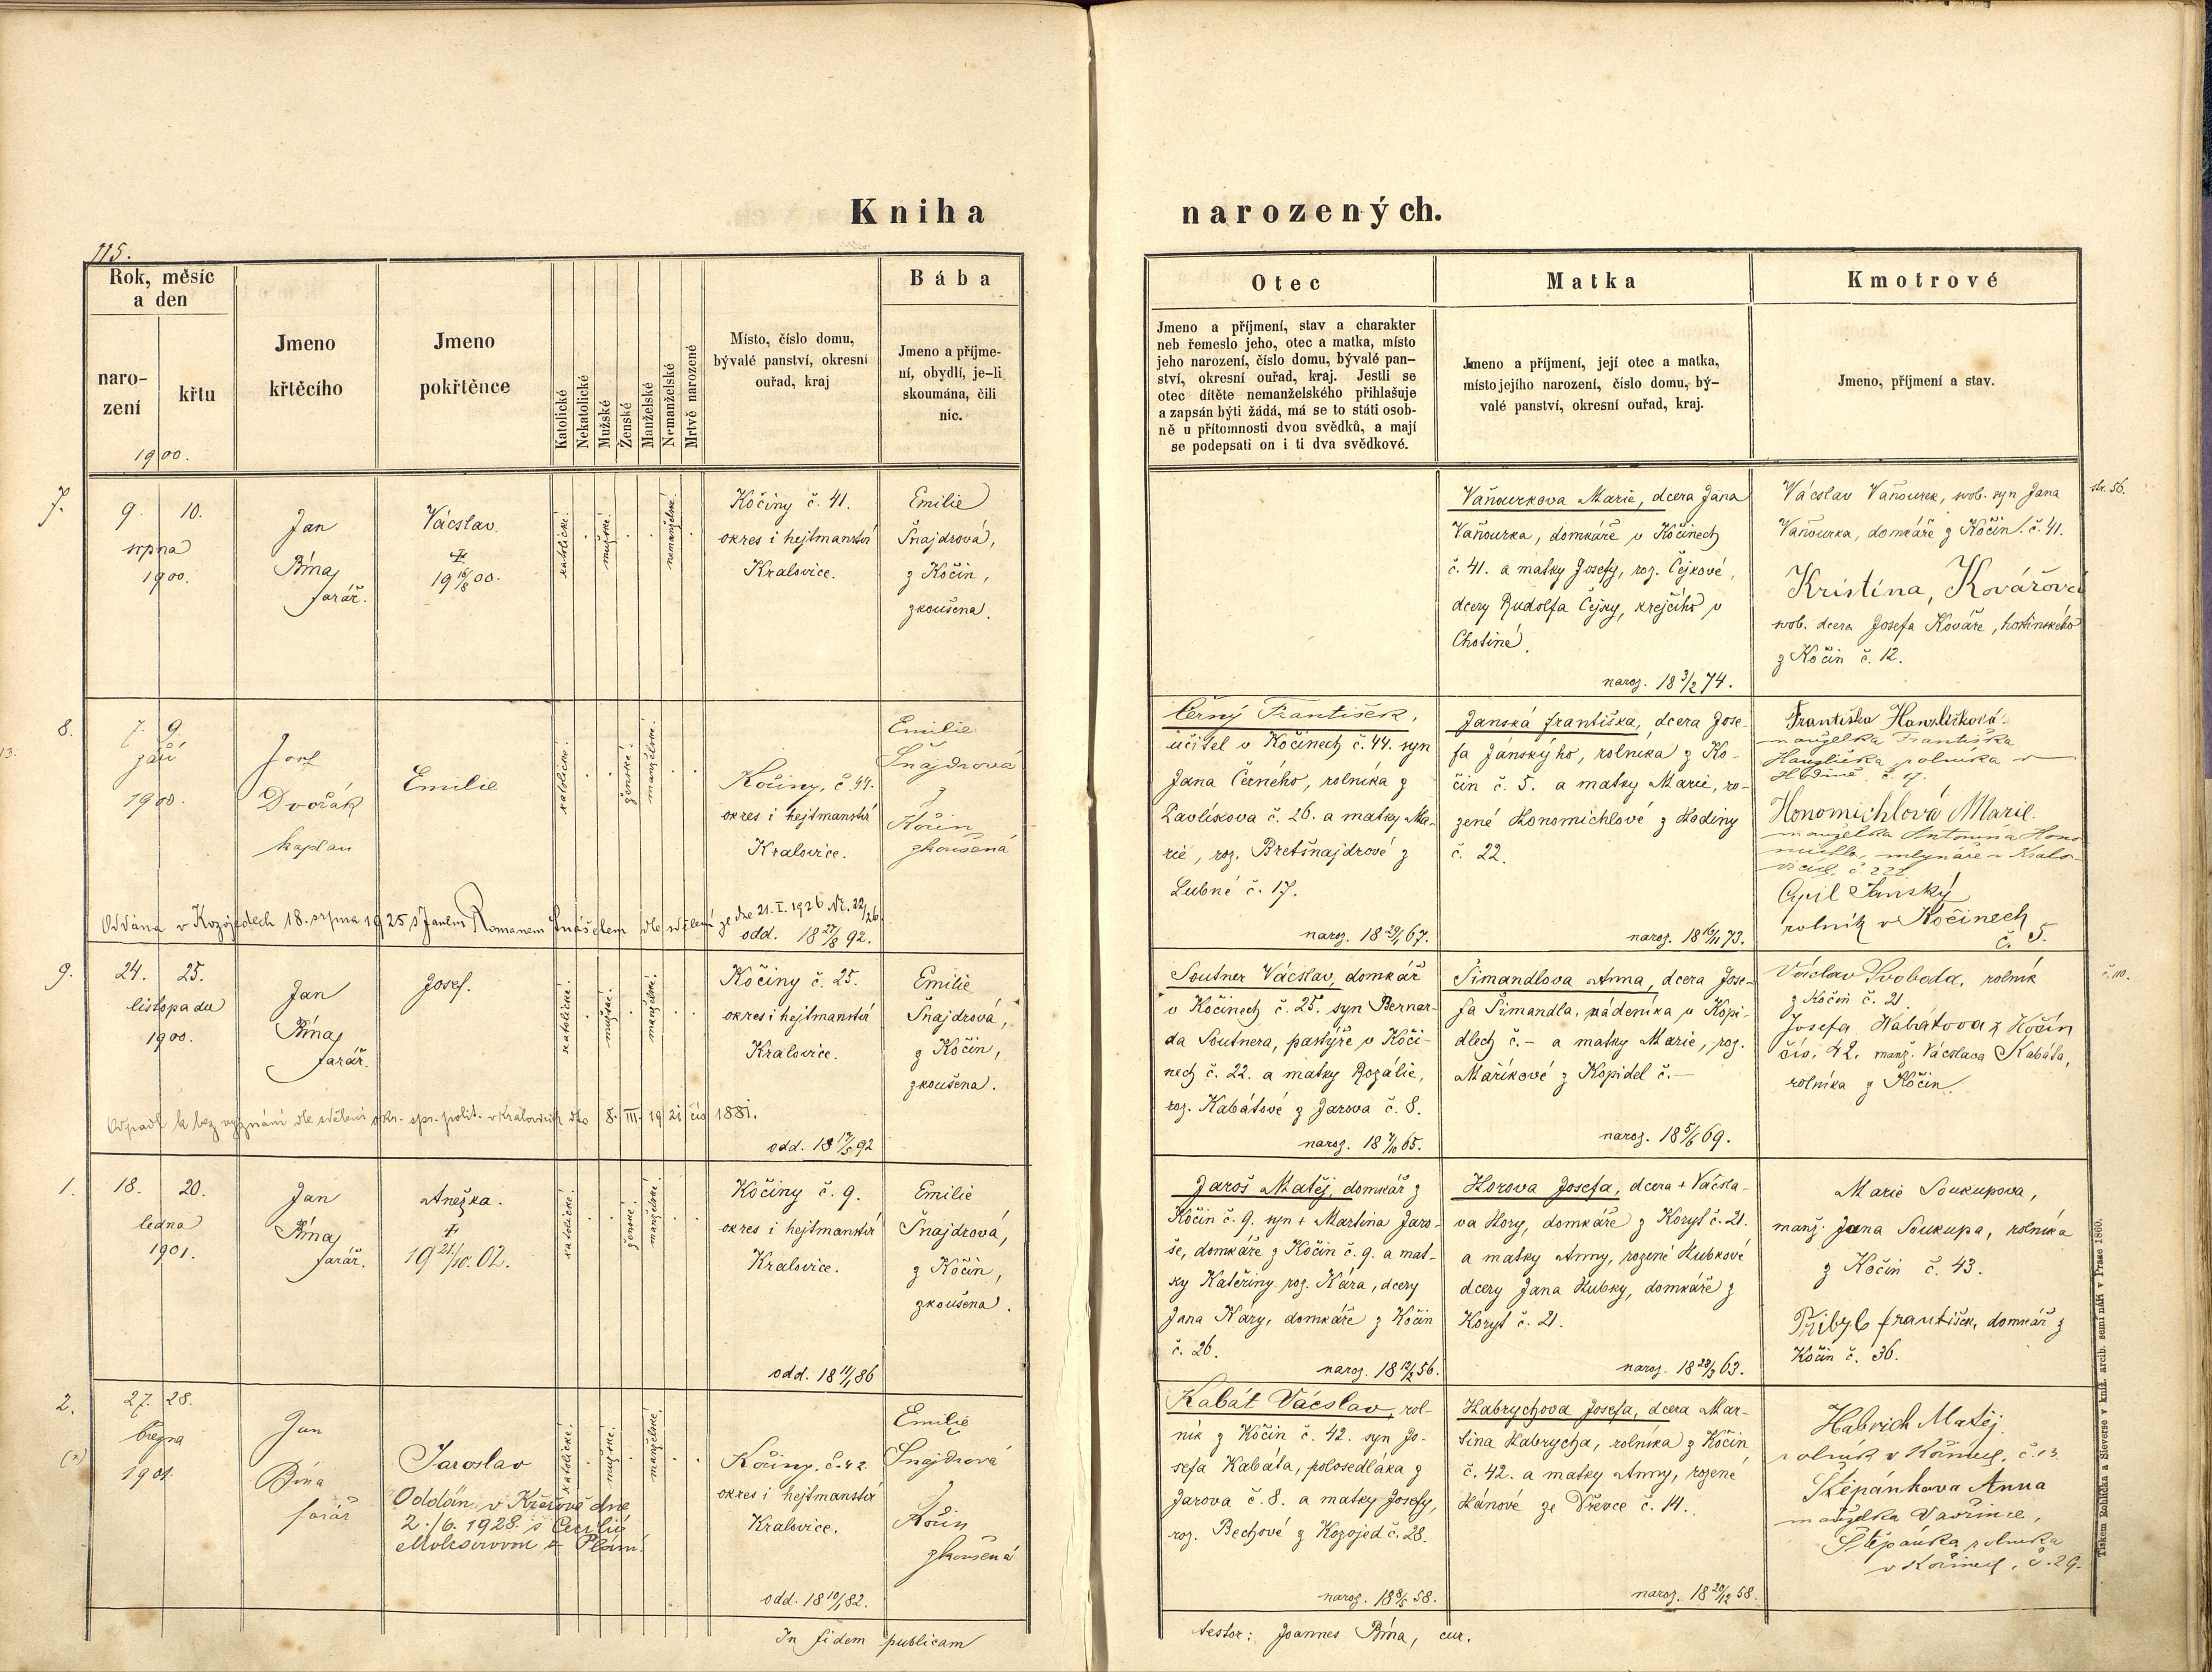 Kniha narozených.
115.
Rok, měsíc
a den
naro-
zení
křtu
1900.
Jmeno
křtěcího
Jmeno
pokřtěnce
Katolické
Nekatolické
Mužské
Ženské
Manželské
Nemanželské
Mrtvě narozené
Místo, číslo domu,
bývalé panství, okresní
ouřad, kraj
Bába
Jmeno a příjme-
ní, obydlí, je-li
skoumána, čili
nic.
Otec
Jmeno a příjmení, stav a charakter
neb řemeslo jeho, otec a matka, místo
jeho narození, číslo domu, bývalé pan-
ství, okresní ouřad, kraj. Jestli se
otec dítěte nemanželského přihlašuje
a zapsán býti žádá, má se to státi osob-
ně u přítomnosti dvou svědků, a mají
se podepsati on i ti dva svědkové.
Matka
Jmeno a příjmení, její otec a matka,
místo jejího narození, číslo domu, bý-
valé panství, okresní ouřad, kraj.
Kmotrové
Jmeno, příjmení a stav.
7.
9. 10.
srpna
1900.
Jan
Bíma,
farář.
Vácslav.
19 16/8 00.
katolické.
mužské.
nemanželské.
Kočiny č. 41.
okres i hejtmanství
Kralovice.
Emilie
Šnajdrová,
z Kočin,
zkoušena.
Vaňourkova Marie, dcera Jana
Vaňourka, domkáře v Kočinech
č. 41. a matky Josefy, roz. Čejkové,
dcery Rudolfa Čejky, krejčího v
Chotiné.
naroz. 18 3/2 74.
Vácslav Vaňourek, svob. syn Jana
Vaňourka, domkáře z Kočin č. 41.
Kristina, Kovářová
svob. dcera Josefa Kováře, hostinského
z Kočin č. 12.
str. 56.
8.
13.
7. 9.
září
1900.
Josef
Dvořák
kaplan
Emilie
katolické.
ženské.
manželské.
Kočiny, č. 44.
okres i hejtmanství
Kralovice.
Emilie
Šnajdrová
z
Kočin
zkoušená
Oddána v Kozojedech 18. srpna 1925 s Janem Romanem dle sdělení ze dne 21. I. 1926 Nr. 22/26
odd. 18 27/8 92.
Černý František,
učitel v Kočinech č. 44. syn
Jana Černého, rolníka z
Pavlíkova č. 26. a matky Ma-
rie, roz. Bretšnajdrové z
Lubné č. 17.
naroz. 18 29/1 67.
Janská Františka, dcera Jose-
fa Jánského, rolníka z Ko-
čin č. 5. a matky Marie, ro-
zené Honomichlové z Hodiny
č. 22.
naroz. 18 16/11 73.
Františka Hanzlíková
manželka Františka
Hanzlíka rolníka v
Honomichlová Marie.
manželka Antonína Hono
michla, mlynáře v Kralo-
vicích, č. 222.
Cyril Janský
rolník v Kočinech
č. 5.
9.
24. 25.
listopadu
1900.
Jan
Bíma,
farář.
Josef.
katolické.
mužské.
manželské.
Kočiny č. 25.
okres i hejtmanství
Kralovice.
Emilie
Šnajdrová,
z Kočin,
zkoušena.
Odpadl k bez vyznání dle sdělení okr. spr. polit. v Kralovicích dto 8. III. 1921 čís 1881.
odd. 18 17/5 92
Soutner Vácslav, domkář
v Kočinech č. 25. syn Bernar-
da Soutnera, pastýře v Koči-
nech č. 22. a matky Rozálie,
roz. Kabátové z Jarova č. 8.
naroz. 18 7/10 65.
Šimandlova Anna, dcera Jose-
fa Šimandla, nádeníka v Kopi-
dlech č. - a matky Marie, roz.
Maříkové z Kopidel č. -
naroz. 18 5/6 69.
Václav Svoboda, rolník
z Kočin č. 21.
Josefa Kabátova z Kočin
čís. 42. manž. Vácslava Kabáta,
rolníka z Kočin.
č. 110.
1.
18. 20.
ledna
1901.
Jan
Bíma,
farář.
Anežka.
19 21/10. 02.
katolické.
ženské.
manželské.
Kočiny č. 9.
okres i hejtmanství
Kralovice.
Emilie
Šnajdrová,
z Kočin,
zkoušena.
odd. 18 11/1 86
Jaroš Matěj, domkář z
Kočin č. 9. syn + Martina Jaro-
še, domkáře z Kočin č. 9. a mat-
ky Kateřiny roz. Kára, dcery
Jana Káry, domkáře z Kočin
č. 26.
naroz. 18 12/2 56.
Horova Josefa, dcera + Vácsla-
va Hory, domkáře z Koryt č. 21.
a matky Anny, rozené Hubkové
dcery Jana Hubky, domkáře z
Koryt č. 21.
naroz. 18 28/3 63.
Marie Soukupova,
manž. Jana Soukupa, rolníka
z Kočin č. 43.
Přibyl František, domkář z
Kočin č. 36.
2.
27. 28.
března
1901.
Jan
Bíma
farář
Jaroslav
Oddán v Kralově dne
2./6. 1928. s Cecilií
katolické.
mužské.
manželské.
Kočiny, č. 42.
okres i hejtmanství
Kralovice.
Emilie
Šnajdrová
z
Kočin
zkoušená
odd. 18 10/1 82.
Kabát Vácslav, rol-
ník z Kočin č. 42. syn Jo-
sefa Kabáta, polosedláka z
Jarova č. 8. a matky Josefy,
roz. Bechové z Kozojed č. 28.
naroz. 18 8/5 58.
Habrychova Josefa, dcera Mar-
tina Habrycha, rolníka z Kočin
č. 42. a matky Anny, rozené
Hánové ze Dřevce č. 14.
naroz. 18 20/12 58.
Habrich Matěj
rolník v Kočinech, č. 13.
Štěpánkova Anna
manželka Vavřince,
Štěpánka rolníka
v Kočinech, č. 29.
In fidem publicam
testor: Joannes Bíma, cur.
Tiskem Rohlíčka a Sieverse v kníž. arcib. semináři v Praze 1860.